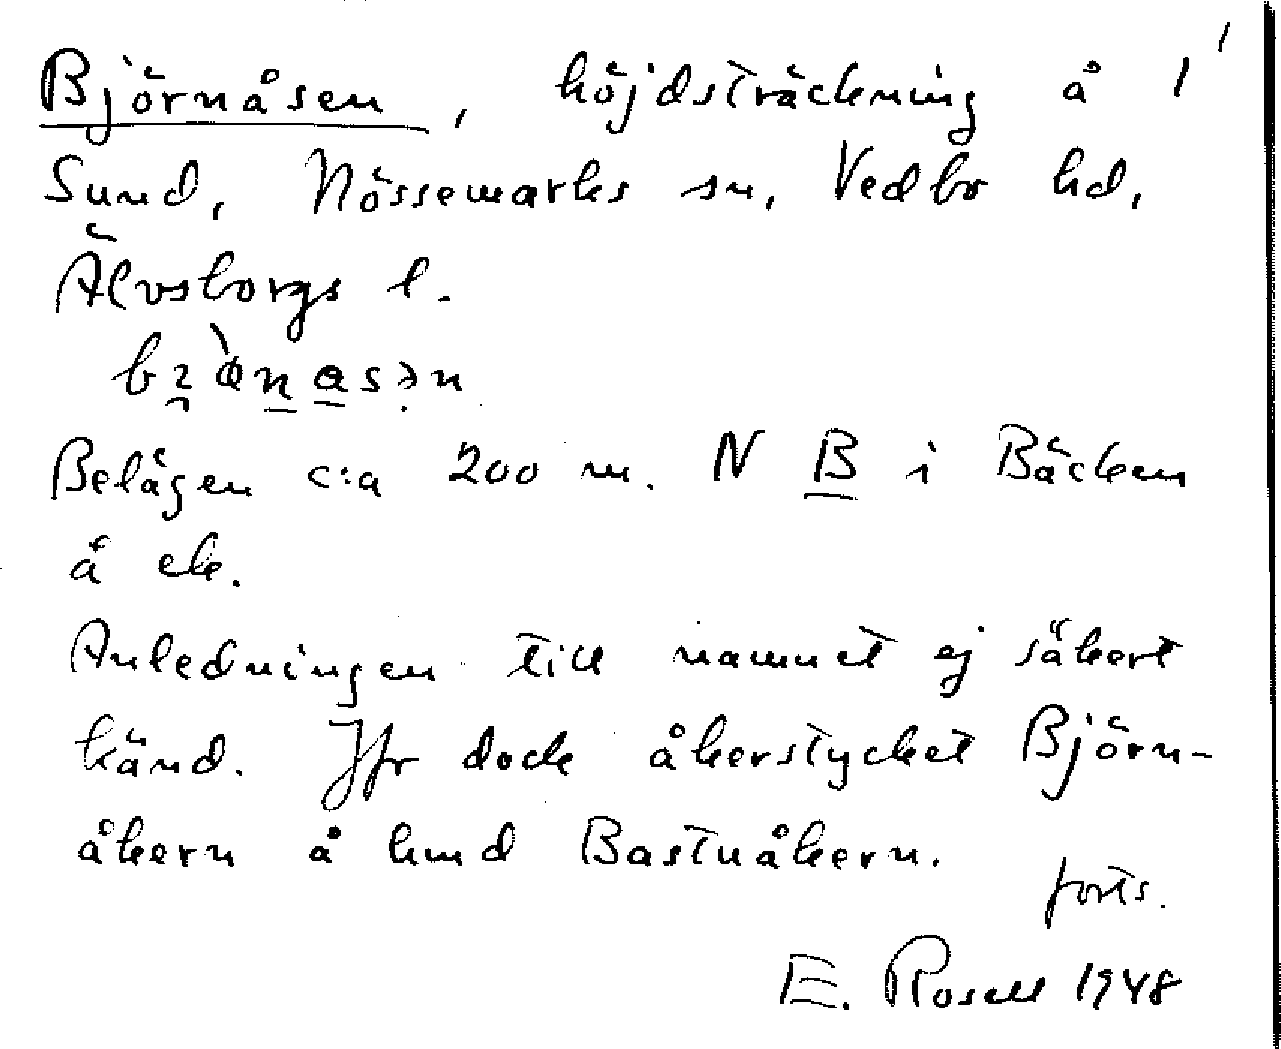 Björnåsen, höjdsträckning å 1
Sund, Nössemarks sn, Vedbo hd,
Älvsborgs l.
Belägen c:a 200 m. N B i Bäcken
å ek.
Anledningen till namnet ej säkert
känd. Jfr dock åkerstycket Björn-
åkern å hmd Bastuåkern.
forts.
E. Rosell 1948